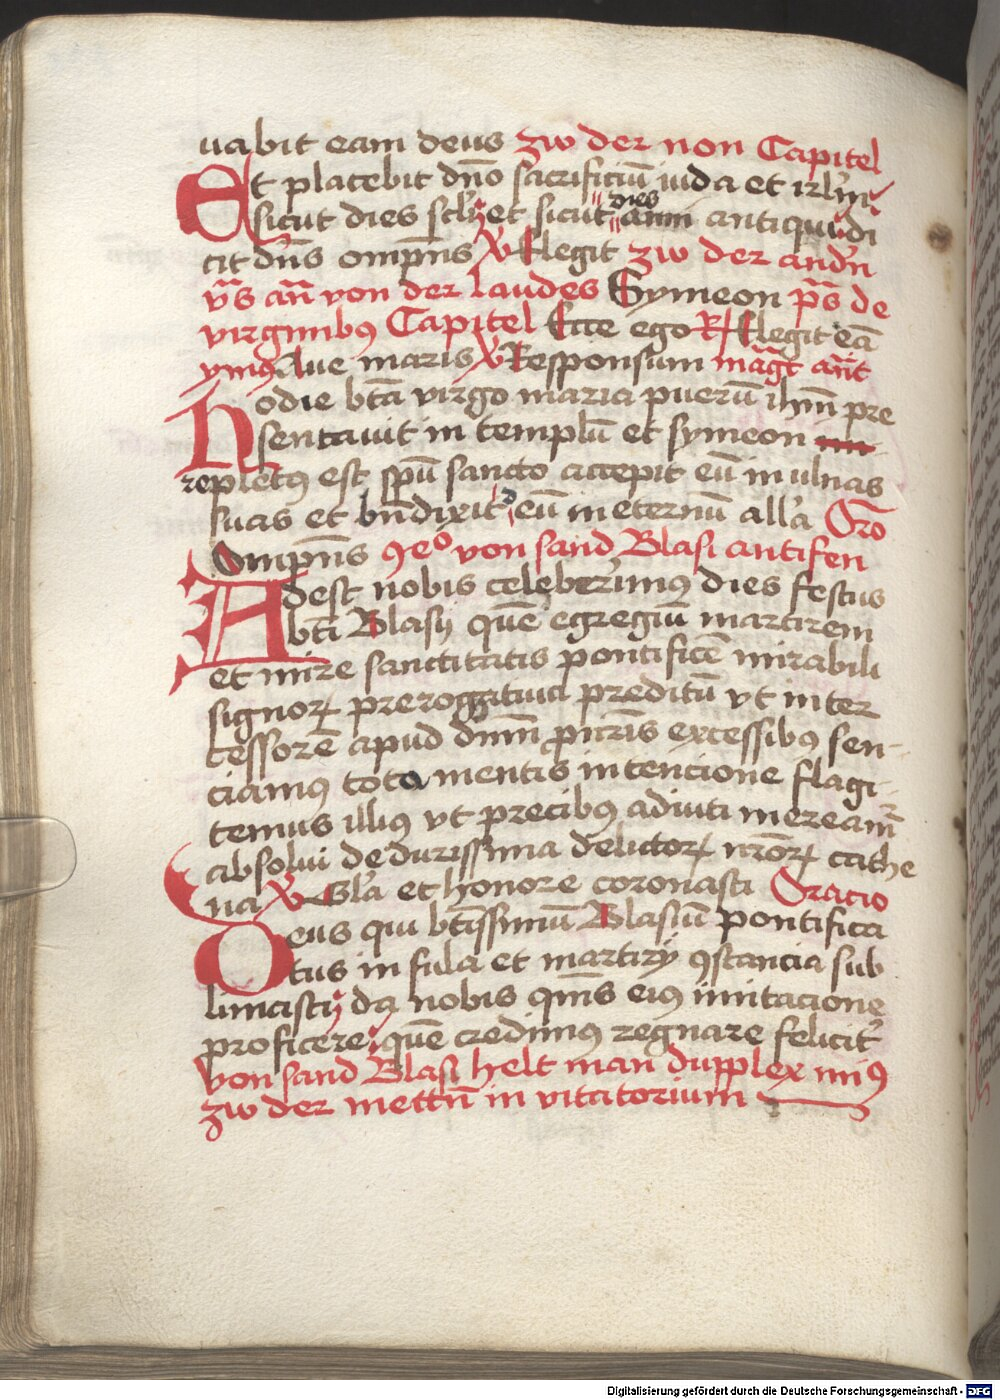 uabit eam deus zw der non Capitel
Et placebit dn̄o sacrificiū iuda et irl̄m
sicut dies scl̄ȷ et sicut dies anni antiqui di
cit dn̄s omp̄ns ℣ Elegit zw der andn̄
v̄s an̄ von der laudes Symeon p̄s de
virginibꝯ Capitel Ecce ego R Elegit eā
ymꝯ Aue maris ℣ Responsum mag̅t an̄t
hodie bt̄a virgo maria puerū ihm̄ pre
sentauit in templū et symeon
repletꝯ est sp̄u sancto accepit eū in ulnas
suas et bn̄dixit eū in eternū all̄a Oro
Omp̄ns ꝯeo von sand Blasi antifen
Adest nobis celeberimꝯ dies festus
bt̄i Blasij quē egregiū martirem
et mire sanctitatis pontificē mirabili
signoꝝ preroggatiua preditū vt inter
cessorē apud dn̄m p̄ nr̄is excessibꝯ sen-
ciamꝯ tota mentis intencione flagi-
temus illiꝯ vt precibꝯ adiuti mereamr̄
absolui de durissima delictoꝝ nr̄oꝝ cathe
na ℣ Gl̄a et honore coronasti Oracio
Deus qui bt̄issimū Blasiū pontifica
tus infula et martirij ꝯstancia sub
limasti da nobis qm̄s eiꝯ imitacione
proficere quē credimꝯ regnare felicit̄
von sand Blasi helt man dupplex miꝯ
zw der mettn̄ in vitatorium
Digitalisierung gefördert durch die Deutsche Forschungsgemeinschaft - DFG